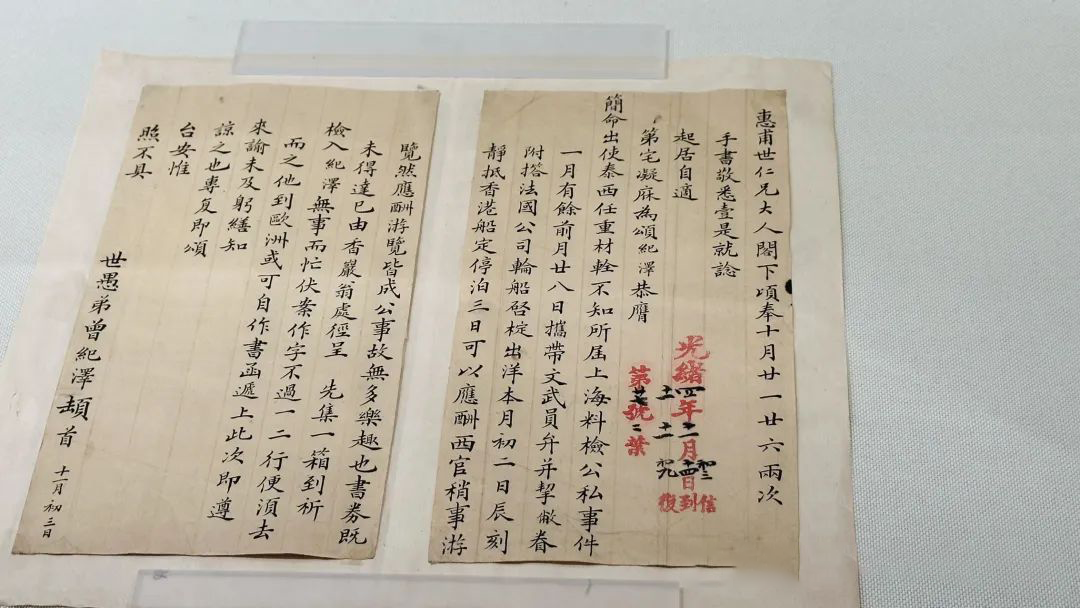 惠甫世仁兄大人閣下頃奉十月廿一廿六兩次
手書敬悉壹是就諗
起居自適
第宅凝庥為頌紀澤恭膺
簡命出使泰西任重材輇不知所屆上海料檢公私事件
一月有餘前月廿八日攜帶文武員弁并挈敝眷
附搭法國公司輪船啓椗出洋本月初二日辰刻
靜抵香港船定停泊三日可以應酬西官稍事游
光緒四年十二月日到
信
復
第號二葉
覽然應酬游覽皆成公事故無多樂趣也書券既
未得達已由香嚴翁處徑呈 先集一箱到祈
檢入紀澤無事而忙伏案作字不過一二行便須去
而之他到歐洲或可自作書函遞上此次即遵
來諭未及躬繕知
諒之也專复即頌
台安惟
照不具
世愚弟曾紀澤頓首 十一月初三日